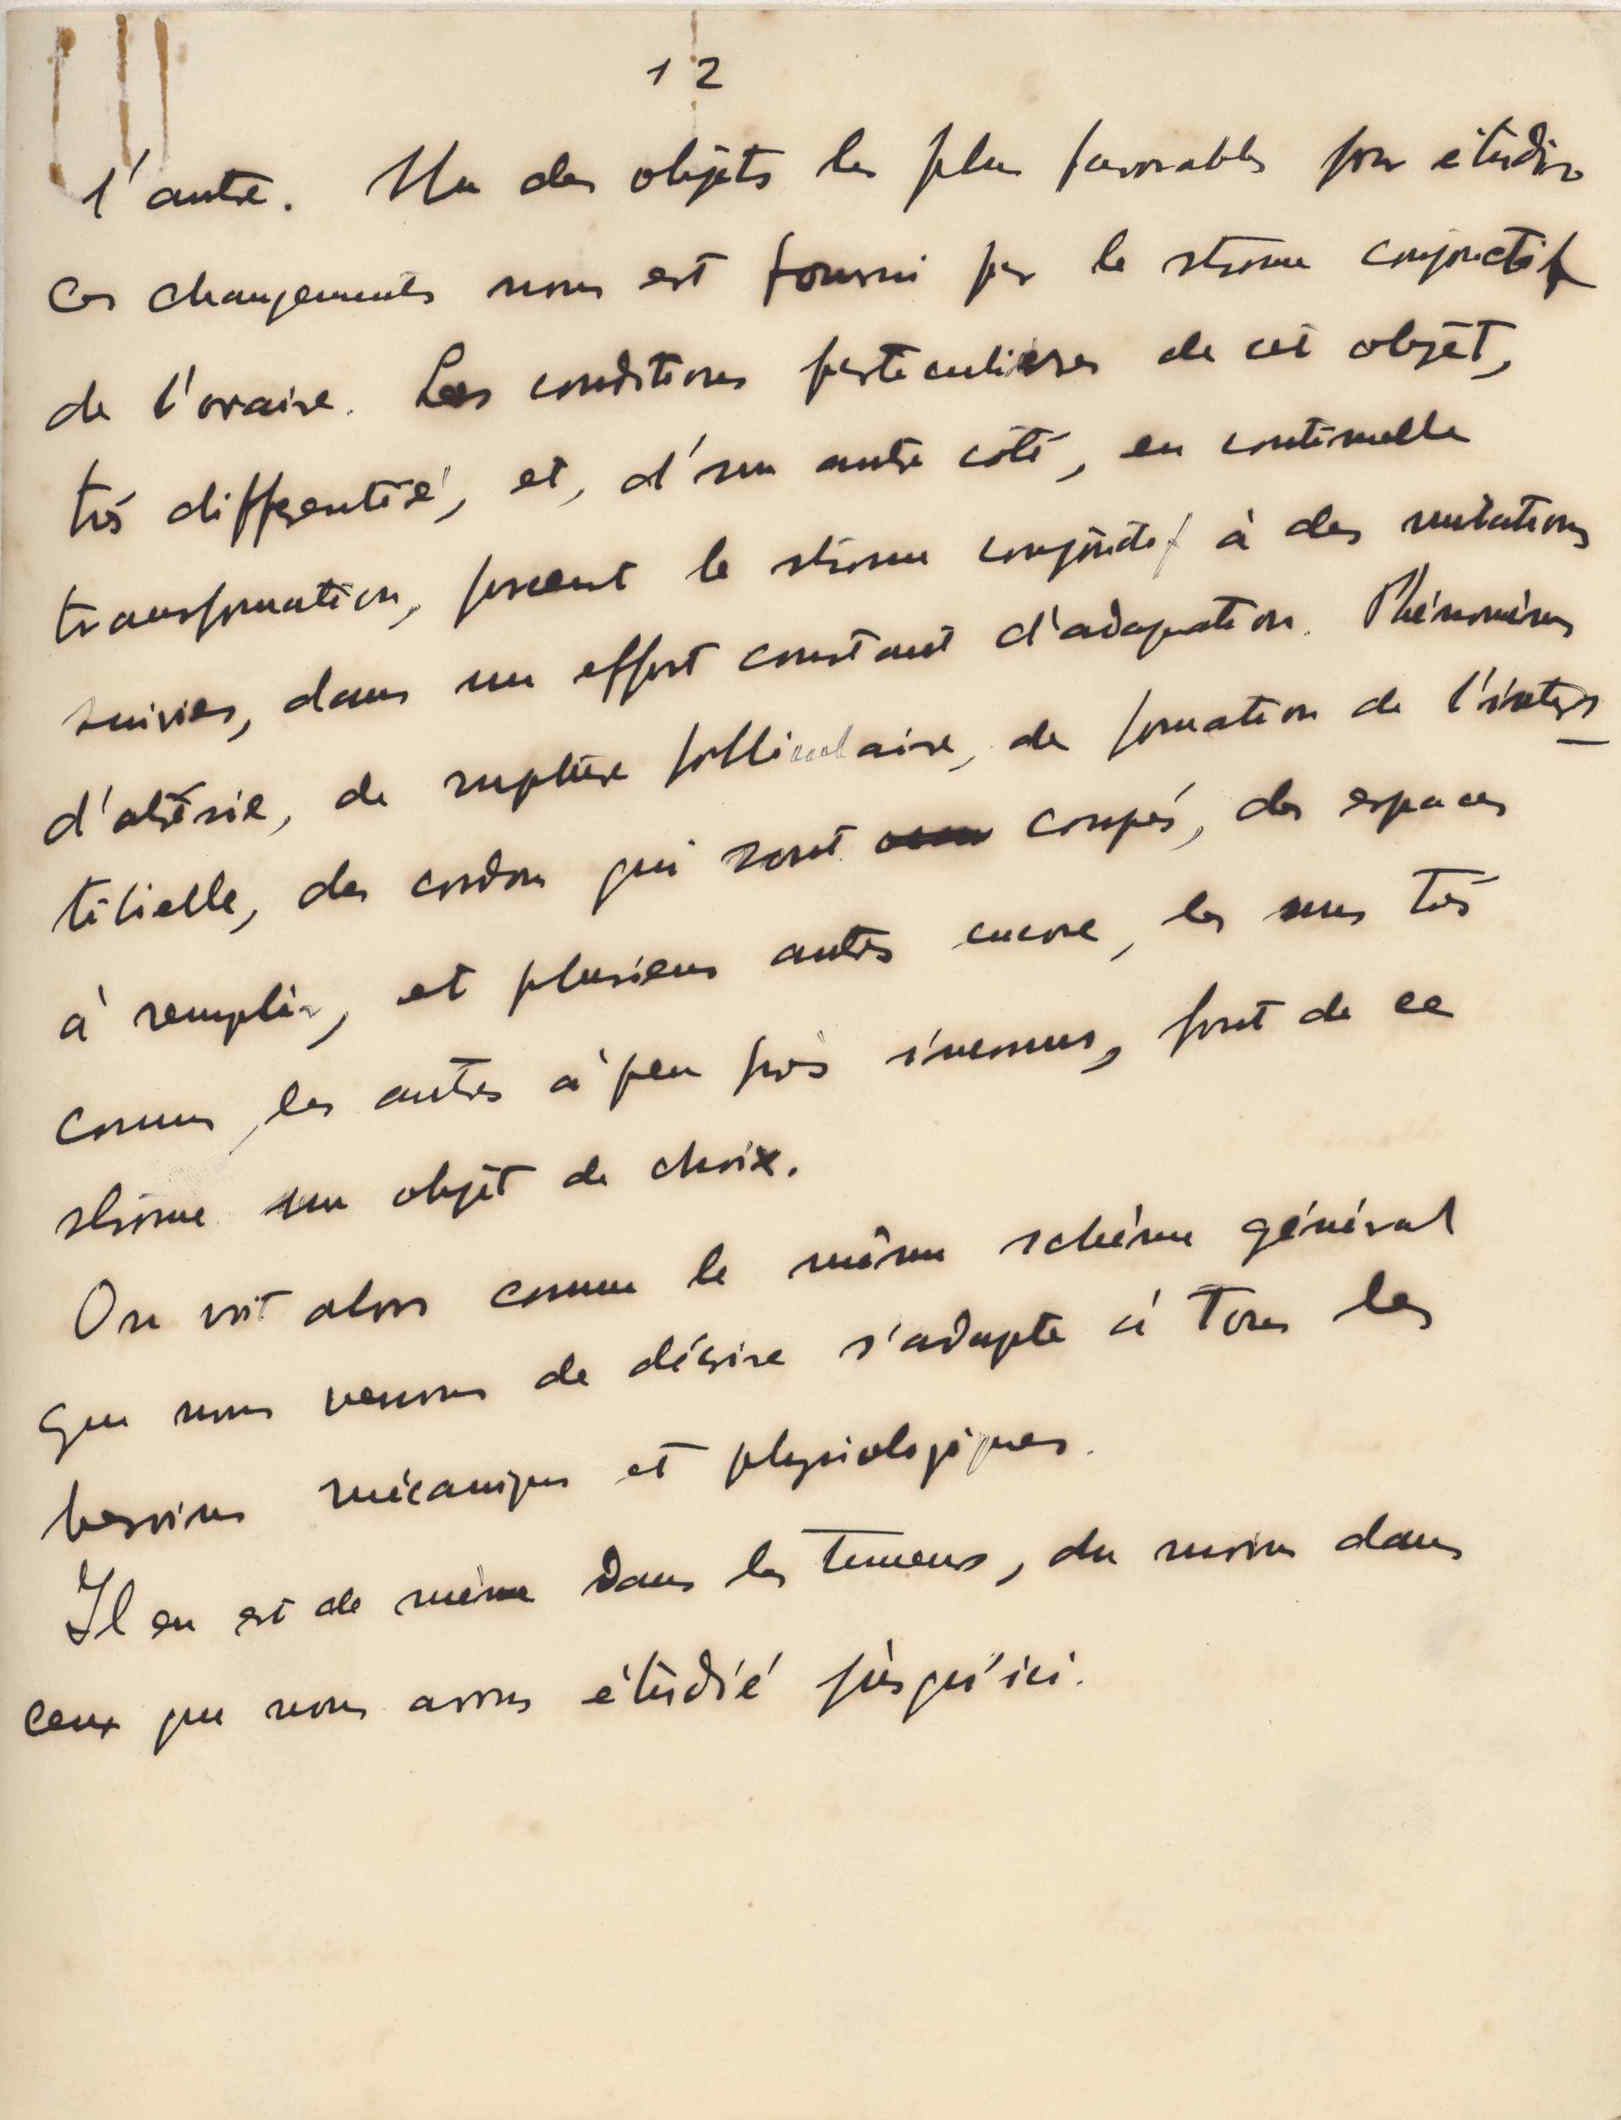 12
l'autre. Un des objets les plus favorables pour étudier
ces changements nous est fourni par le stroma conjonctif
de l'ovaire. Les conditions particulières de cet objet,
très differentié, et, d'un autre côté, en continuelle
transformation, forcent le stroma conjonctif à des mutations
suivies, dans un effort constant d'adaptation. Phénomènes
d'atrésie, de rupture folliculaire, de formation de l'inters
titielle, des cordons qui sont coupés, des espaces
à remplir, et plusieurs autres encore, les uns très
connus, les autres à peu près inconnus, font de ce
stroma un objet de choix.
On voit alors comme le même schéma général
que nous venons de décrire s'adapte à tous les
besoins mécaniques et physiologiques.
Il en est de même dans les tumeurs, du moins dans
ceux que nous avons étudié jusqu'ici.